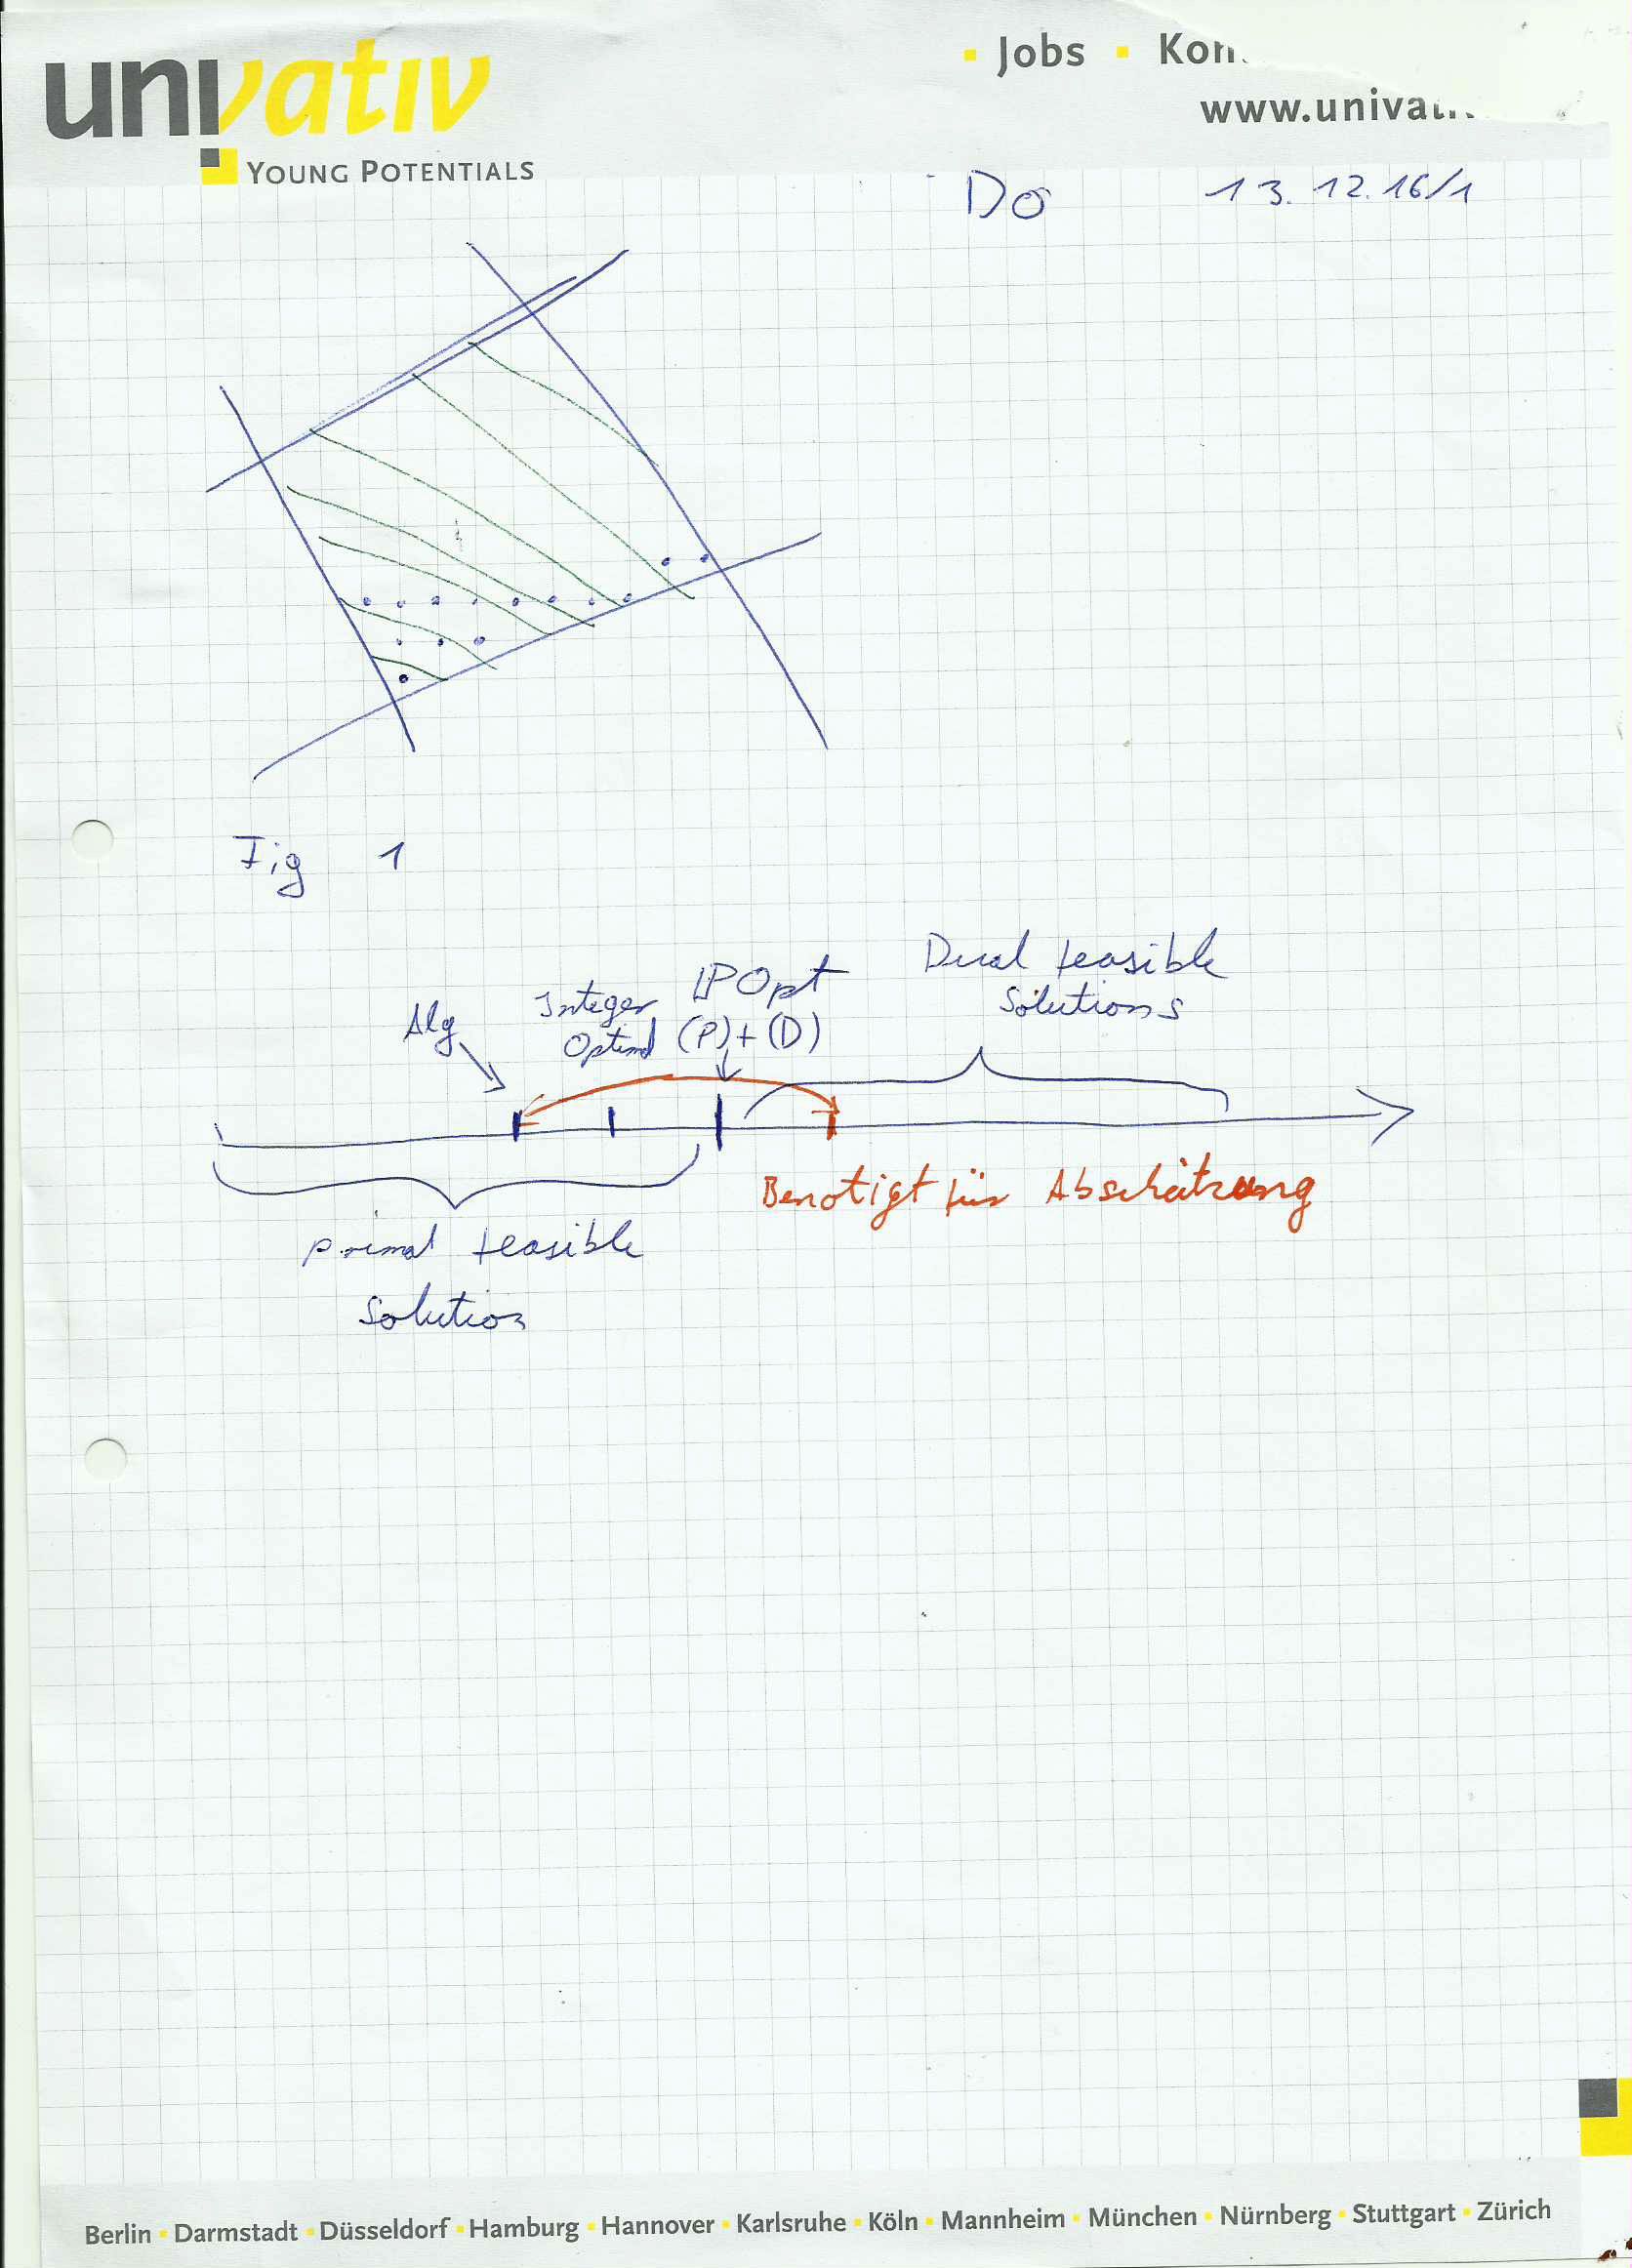 univativ
YOUNG POTENTIALS
Jobs
www.univativ
Do 13.12.16/1
Fig 1
Alg
Integer
LP Opt
(P)+(D)
Dual feasible
Solutions
Benötigt für Abschätzung
primal feasible
Solution
Berlin Darmstadt Düsseldorf Hamburg Hannover Karlsruhe Köln Mannheim München Nürnberg Stuttgart Zürich